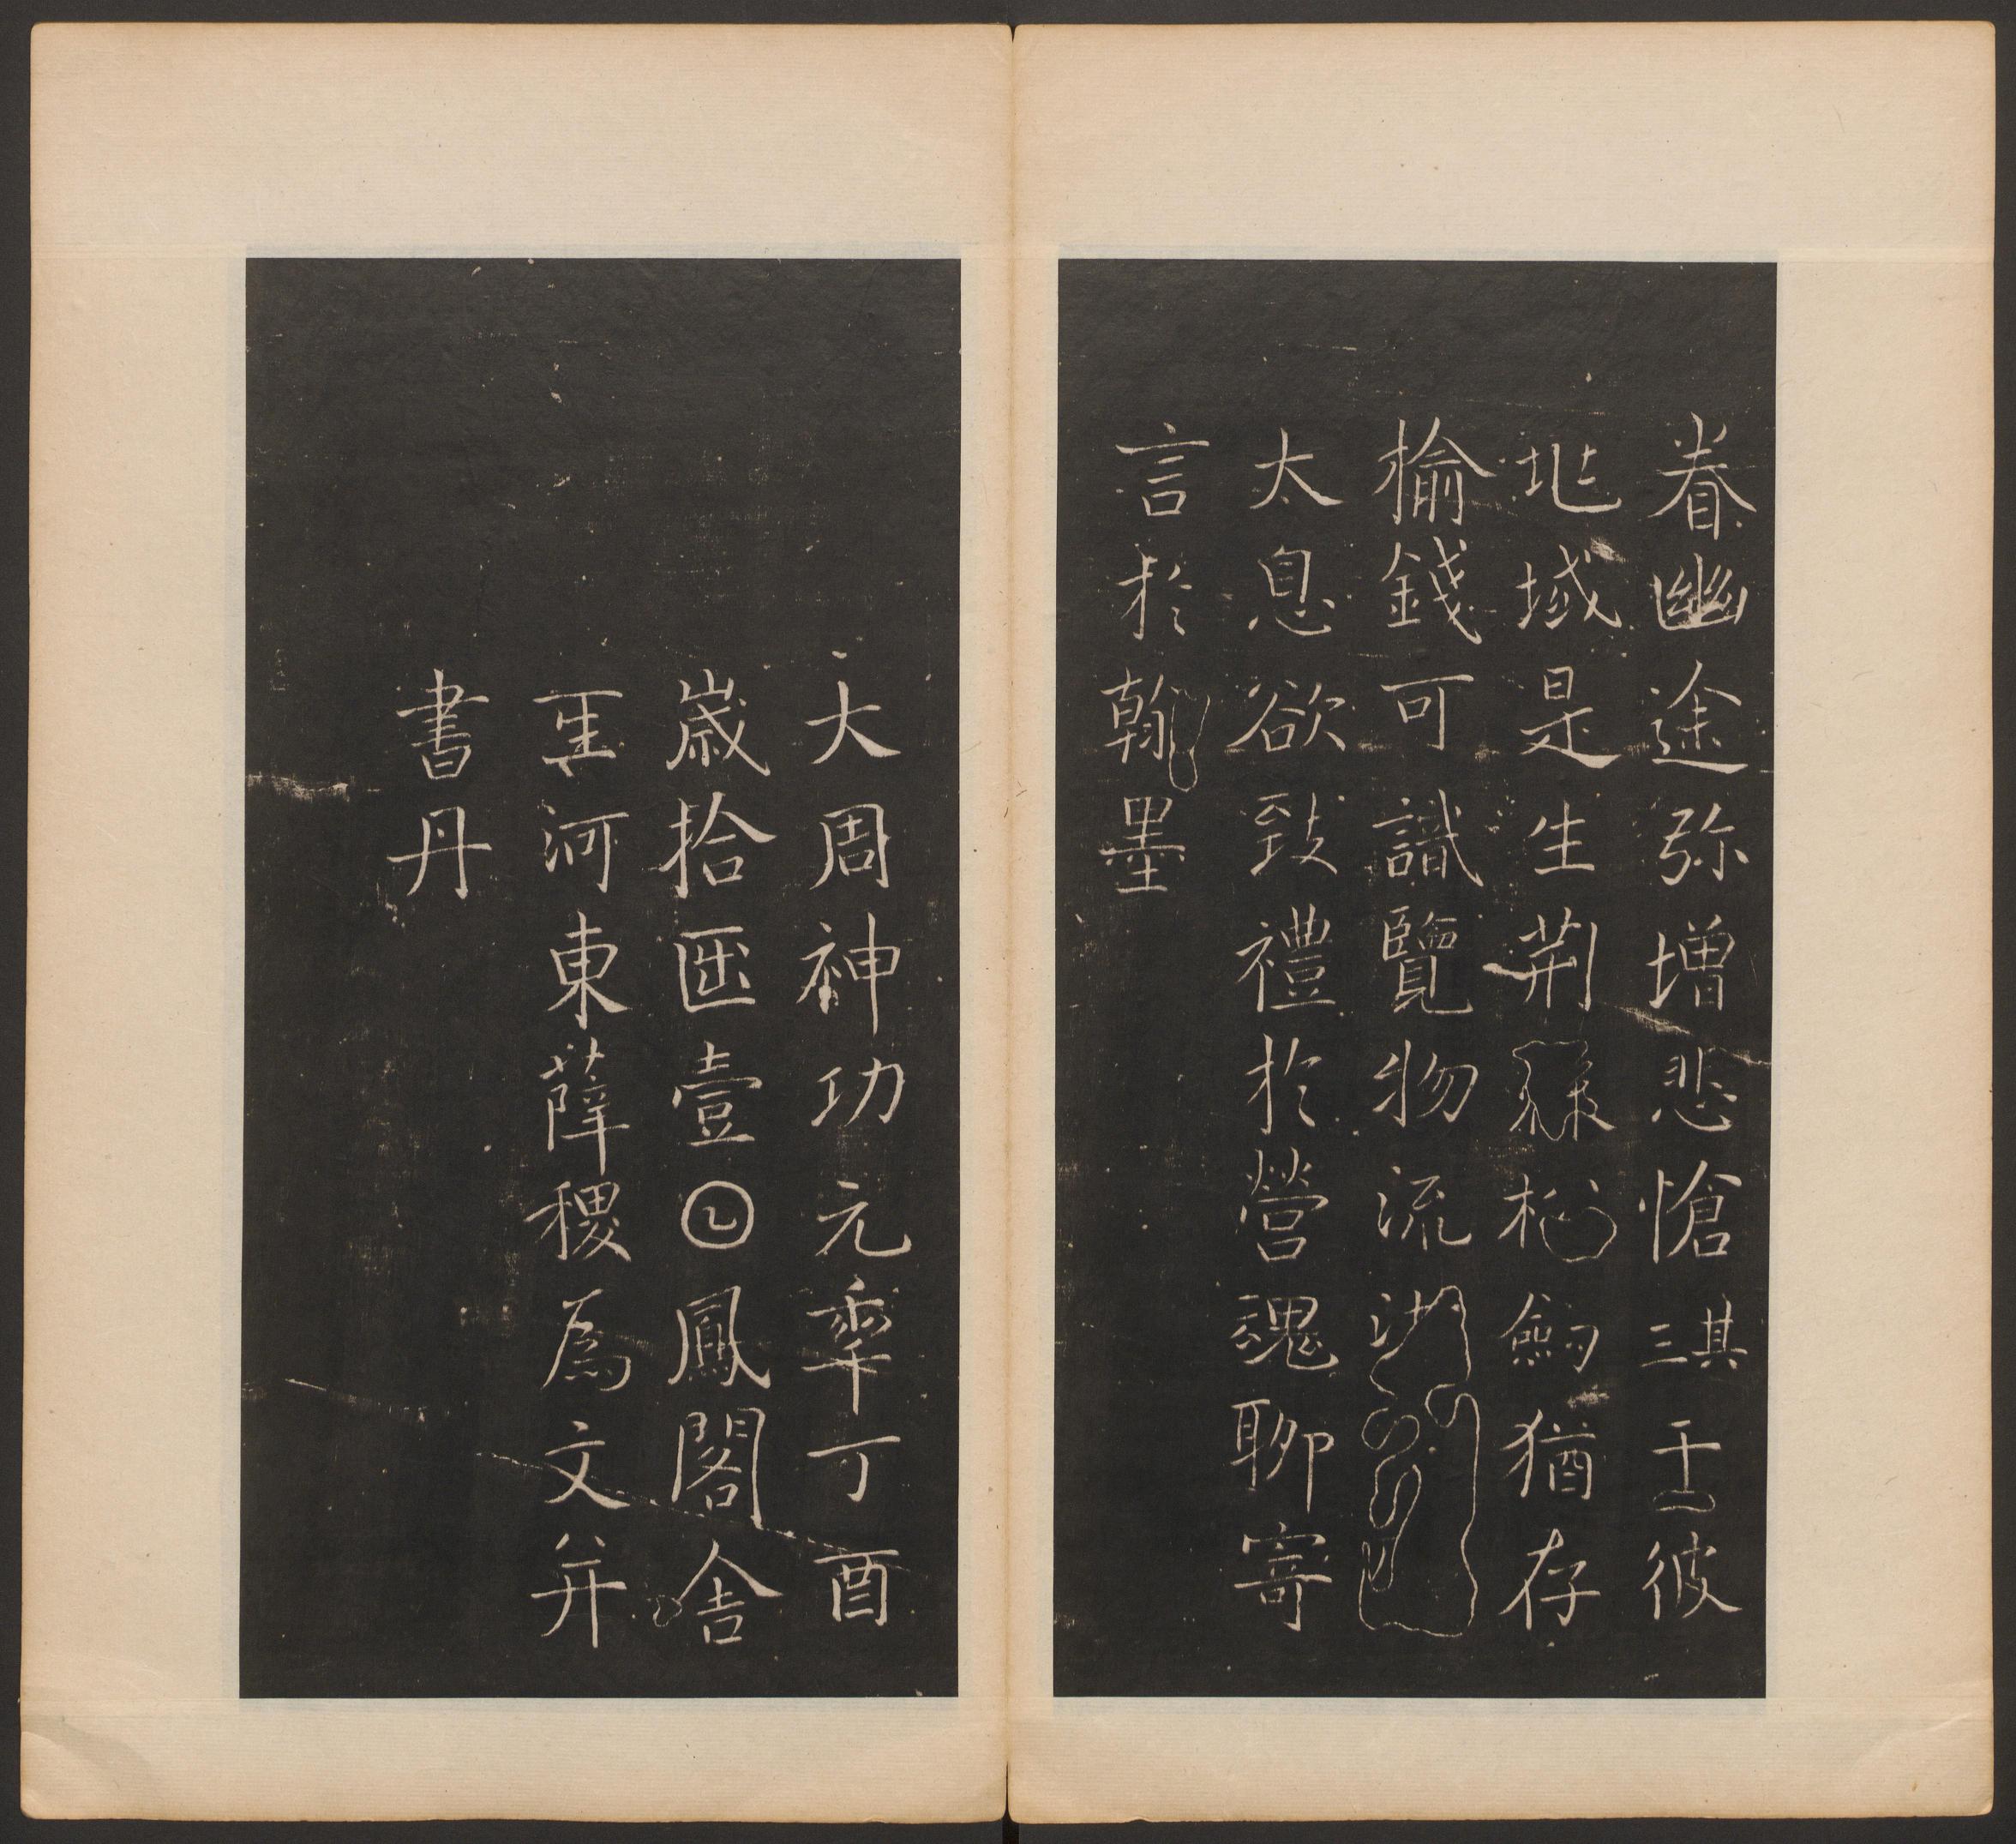 眷幽途弥增悲愴其三于彼
垗域是生荆棘松劒猶存
榆錢可識覽物流
太息欲致禮於營魂聊寄
言於翰墨
大周神功元𠡦丁酉
歲拾𠥱壹𡆠鳳閣舍
𤯔河東薛稷爲文并
書丹